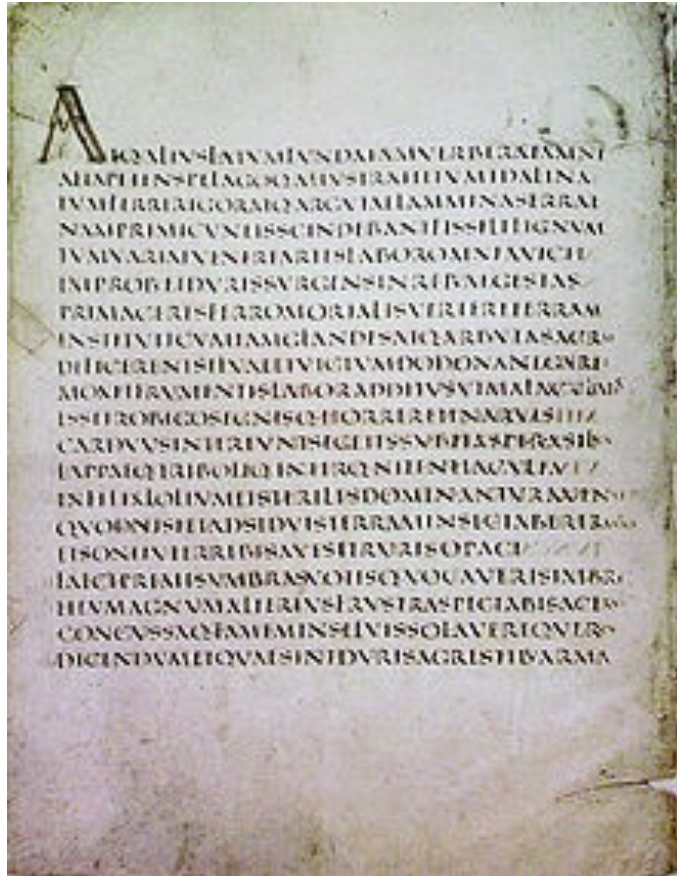 ATQ·ALIVSLATVMFVNDAIAMVERBERATAMNE
ALTAPETENSPELAGOQ·ALIVSTRAHITVMIDALINA
TVMFERRIRIGORATQ·ARGVTAELAMMINASERRAE
NAMPRIMICVNEISSCINDEBANTFISSILELIGNVM
TVMVARIAEVENEREARTESLABOROMNIAVICIT
IMPROBETDVRISVRGENSINREBVSEGESTAS
PRIMACERESFERROMORTALISVERTERETERRAM
INSTITVITCVMIAMGLANDESATQ·ARBVTASACRAE
DEFICERENTSILVAEETVICTVMDODONANEGARET
MOXETFRVMENTISLABORADDITVSVTMALACVLMOS
ESSETROBIGOSEGNISQ·HORRERETINARVIS
CARDVVSINTEREVNTSEGETESSVBITASPERASILVA
LAPPAEQ·TRIBOLIQ·INTERQ·NITENTIACVLTA
INFELIXLOLIVMETSTERILESDOMINANTVRAVEN
QVODNISIETADSIDVISTERRAMINSECTABERERAS
ETSONITVTERREBISAVISETRVRISOPACI
FALCEPREMESVMBRASVOTISQ·VOCAVERISIMBRE
HEVMAGNVMALTERIVSFRVSTRASPECTABISACER
CONCVSSAQ·FAMEMINSILVISSOLAVEREQVER
DICENDVMETQVAESINTDVRISAGRESTIBVARMA